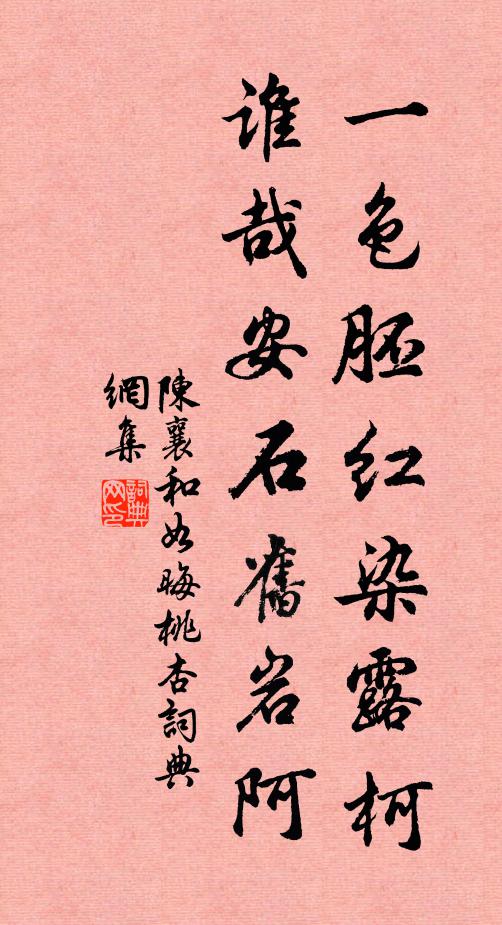 一色胚红染露柯
谁哉安石舊岩阿
陳襄和如晦桃杏詞典
網集
詞典
网印